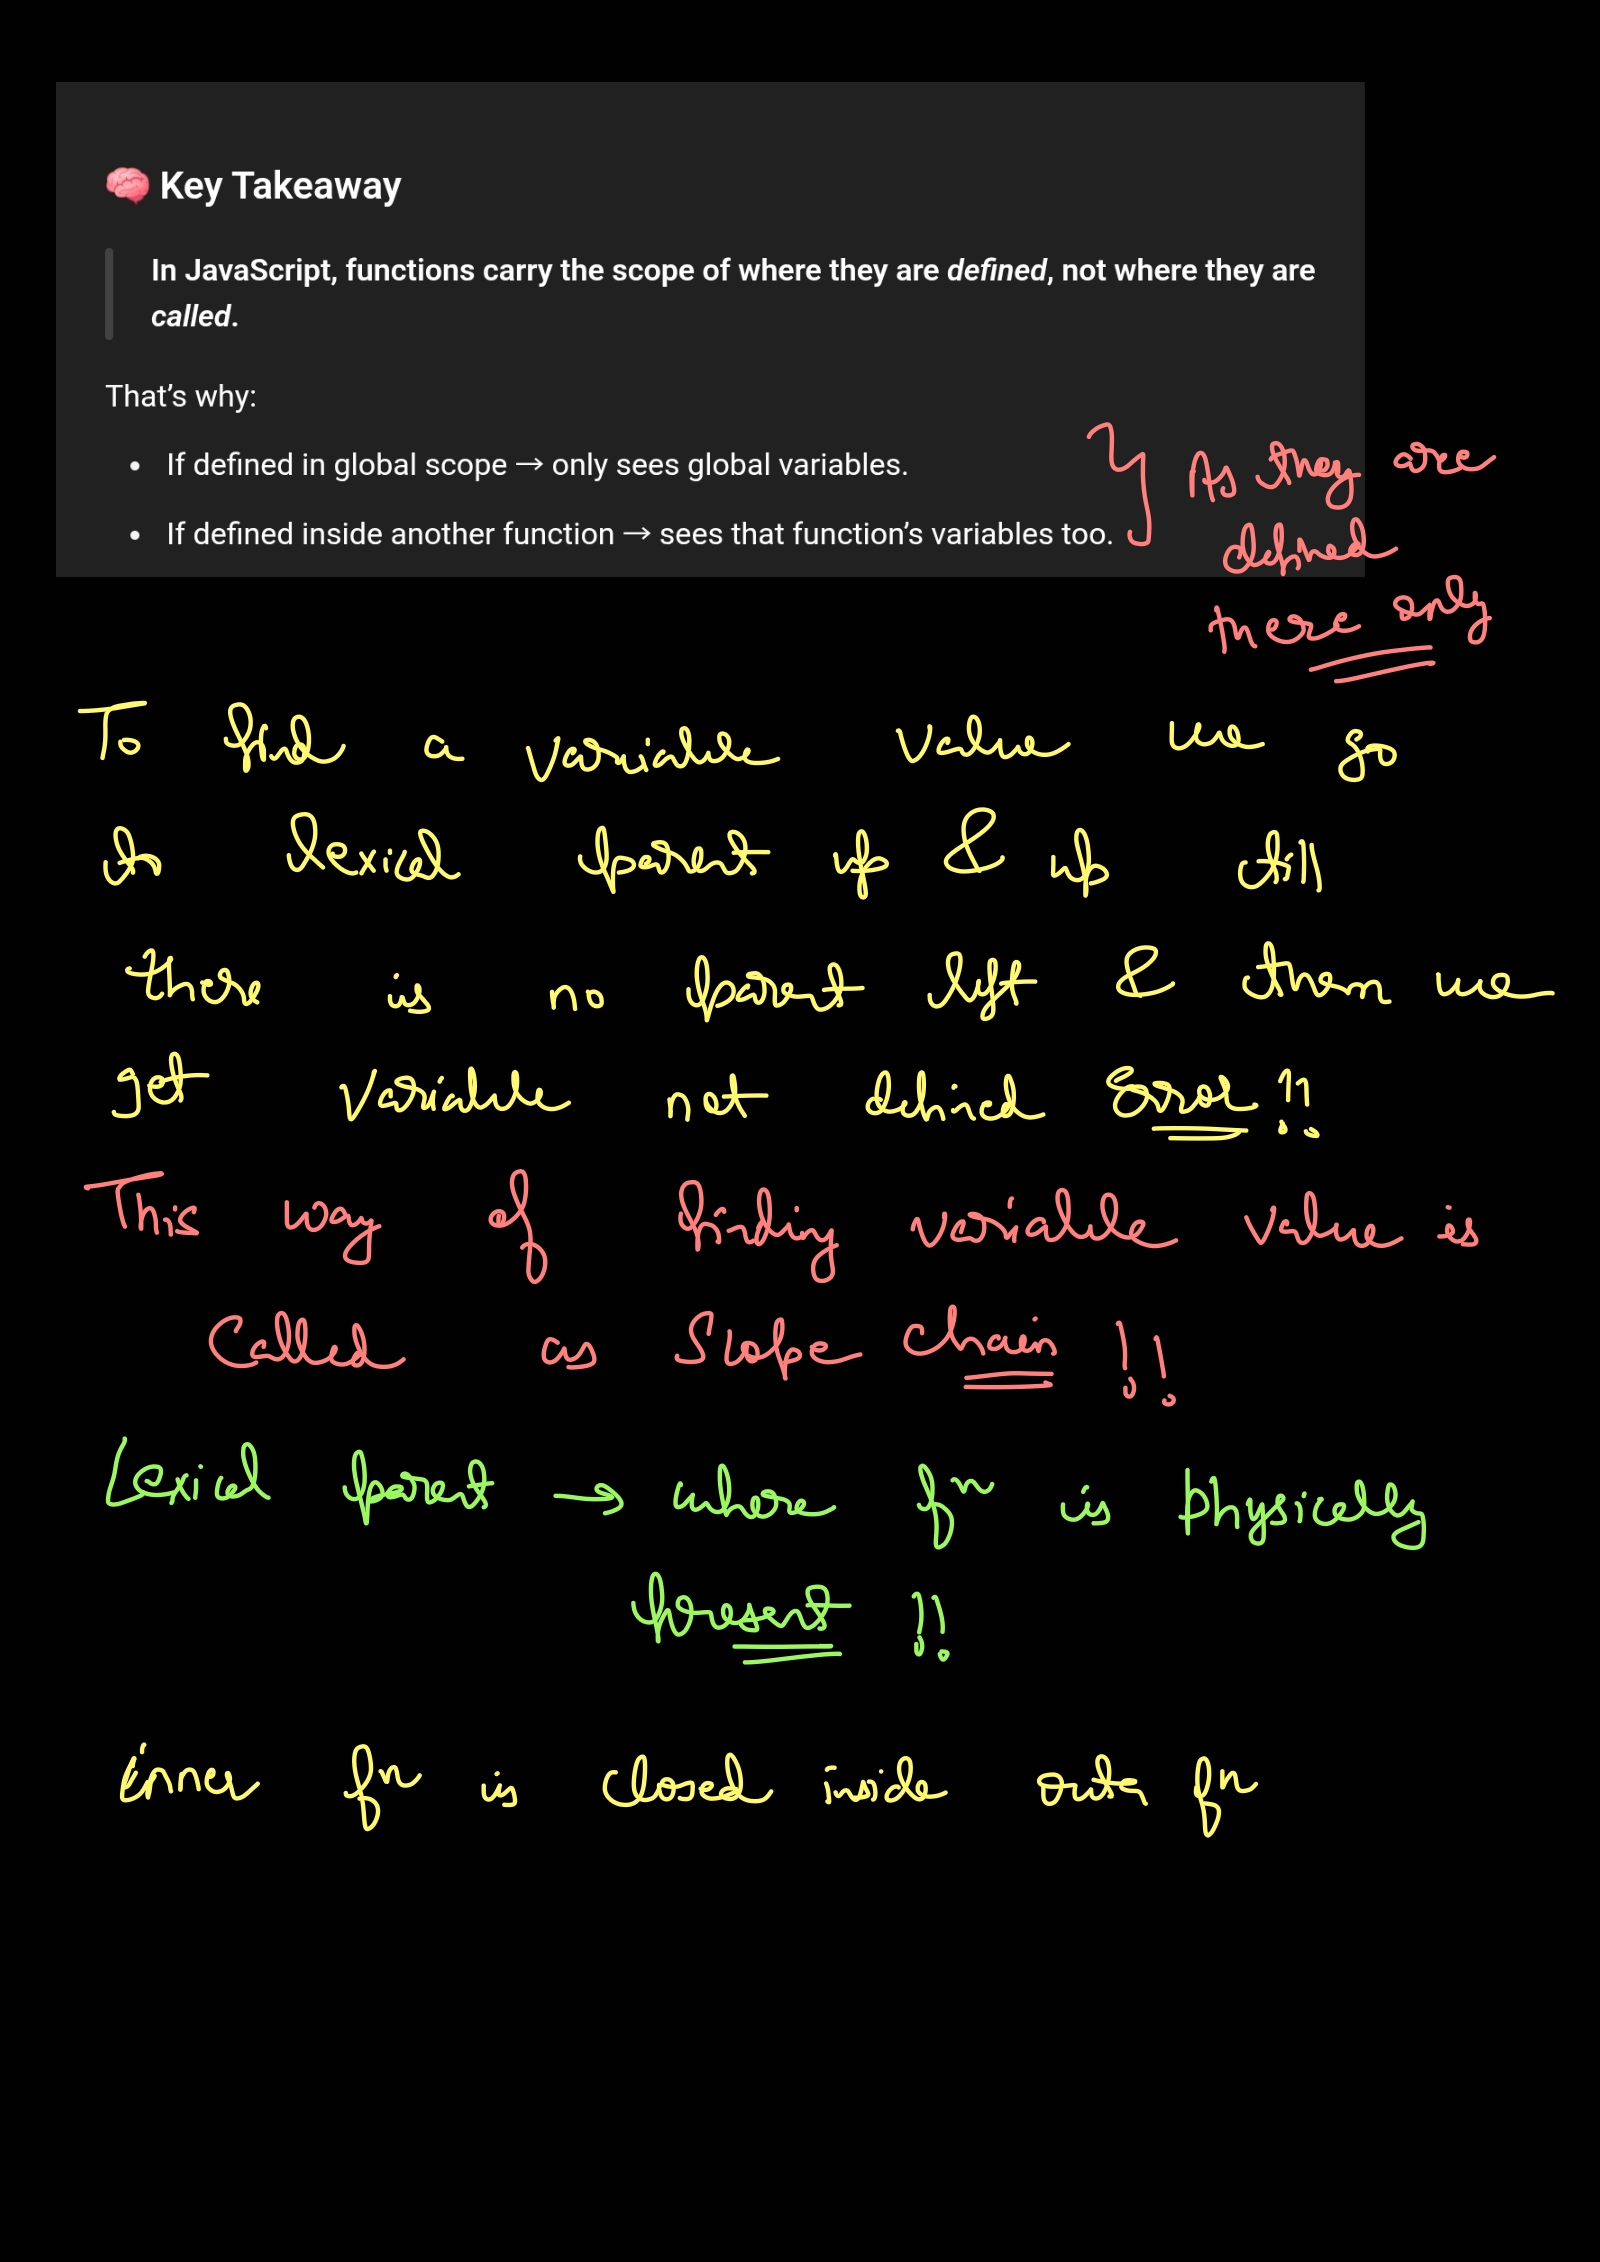 🧠 Key Takeaway
In JavaScript, functions carry the scope of where they are defined, not where they are
called.
That’s why:
• If defined in global scope → only sees global variables.
• If defined inside another function → sees that function’s variables too.
As they are
defined
there only
To find a variable value we go
to lexical parent up & up till
there is no parent left & then we
get variable not defined Error !!
This way of finding variable value is
Called as Scope chain !!
Lexical parent → where fⁿ is physically
present !!
inner fⁿ is closed inside outer fⁿ